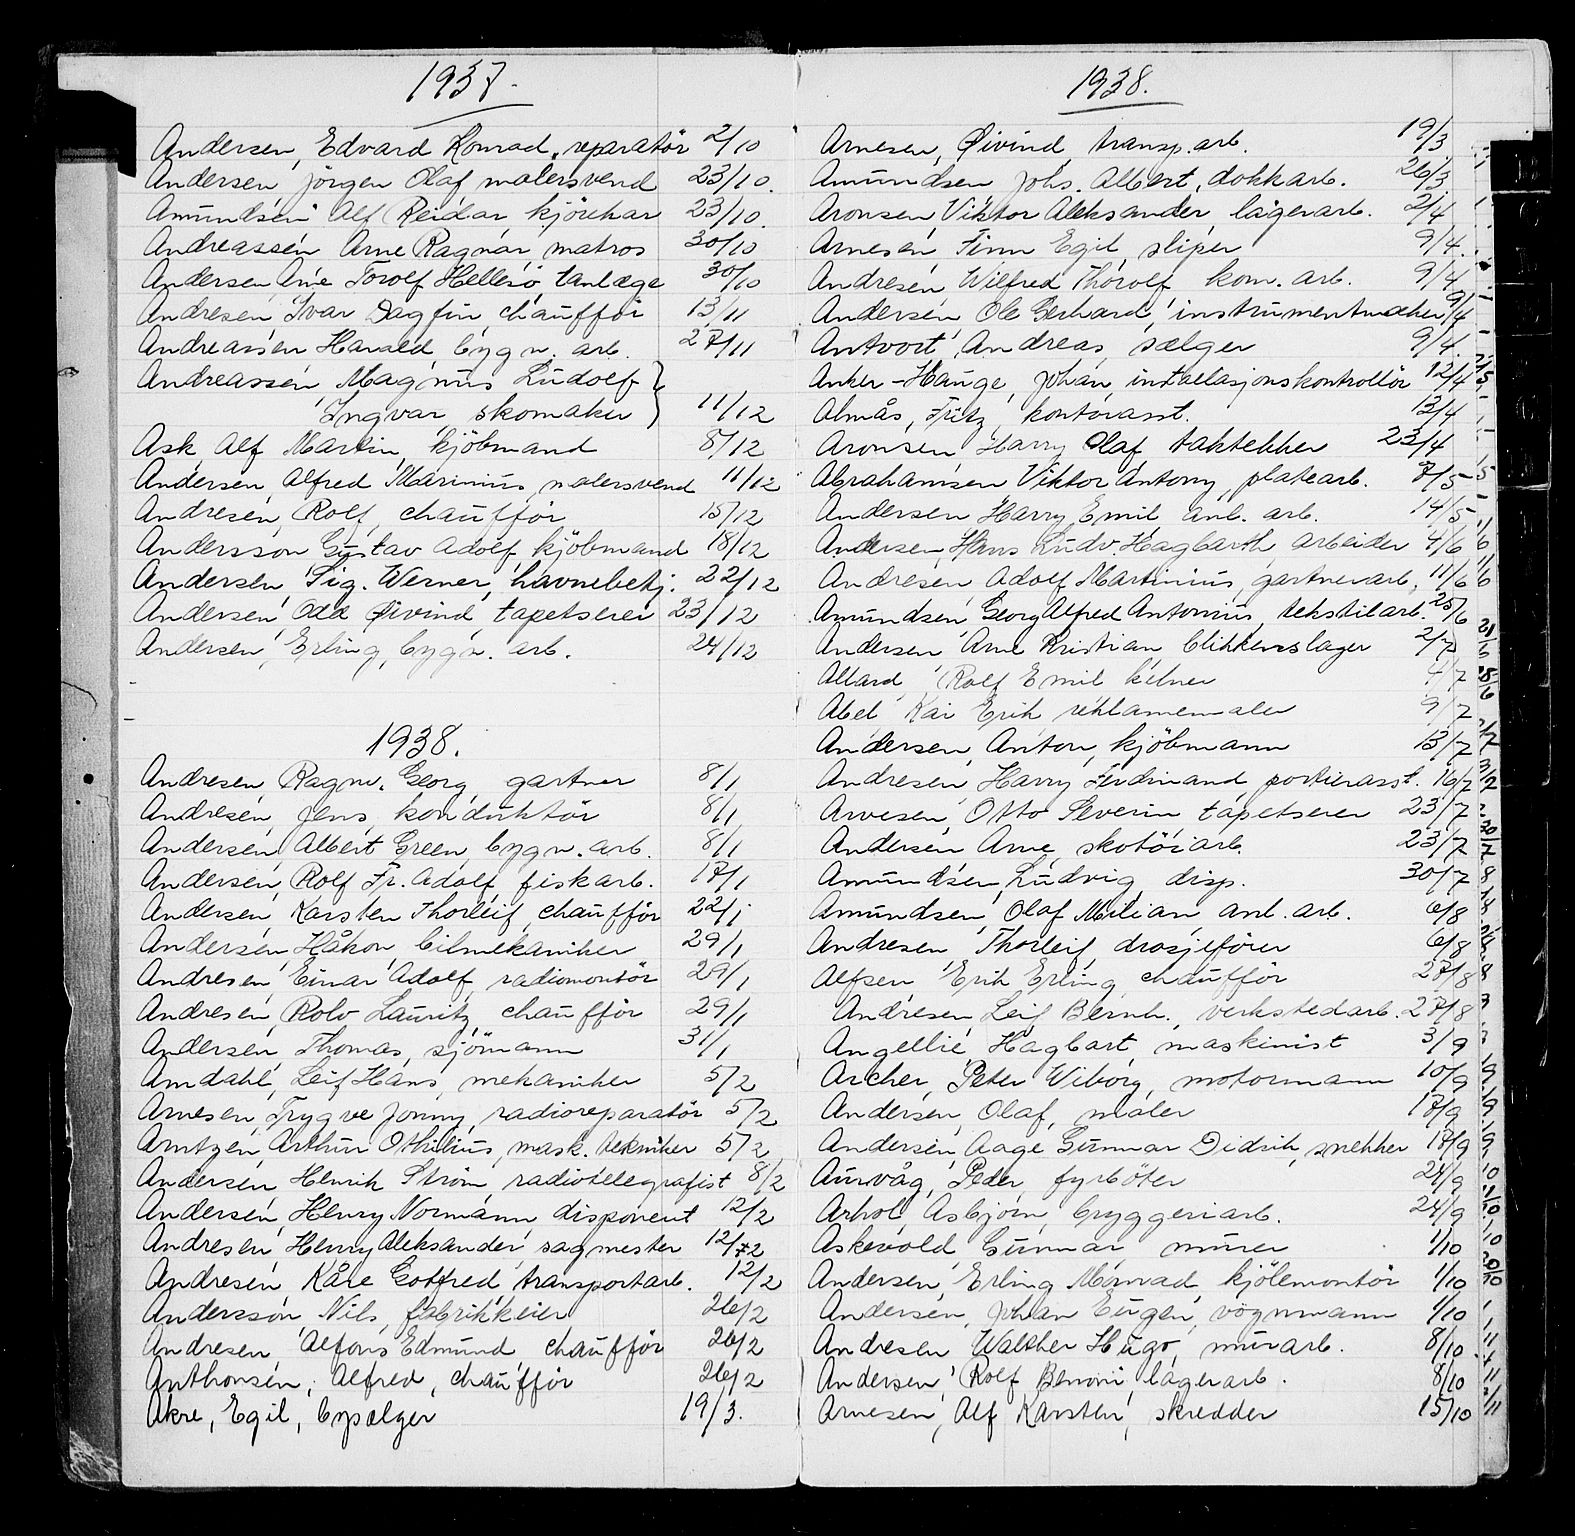 1937.
Andersen, Edvard Konrad, reparatör 2/10
Andersen, Jörgen Olaf malersvend 23/10.
Amundsen Alf Reidar kjörekar 23/10.
Andreassen Arne Ragnar matros 30/10
Andersen Arne Torolf Hellesö, tanlæge 30/10
Andresen Ivar Dagfin chaufför 13/11
Andreassen Harald, bygn. arb. 27/11
Andreassen Magnus Ludolf
Ingvar, skomaker } 11/12
Ask, Alf Martin, kjöbmand 8/12
Andersen, Alfred Marinius, malersvend 11/12
Andresen, Rolf, chaufför 15/12
Andersson Gustav Adolf, kjöbmand 18/12
Andersen, Sig. Werner, havnebetj. 22/12
Andersen Odd Øivind, tapetserer 23/12
Andersen, Erling, bygn. arb. 24/12
1938.
Andresen, Ragnv. Georg, gartner 8/1
Andresen, Jens, konduktör 8/1
Andersen, Albert Green, bygn. arb. 8/1
Andersen, Rolf Fr. Adolf, fiskarb. 17/1
Andersen, Karsten Thorleif, chaufför 22/1
Andersen, Håkon, bilmekaniker 29/1
Andresen, Einar Adolf, radiomontör 29/1
Andresen, Rolv Lauritz, chaufför 29/1
Andersen, Thomas, sjömann 31/1
Amdahl, Leif Hans, mekaniker 5/2
Arnesen, Trygve Jonny, radioreparatör 5/2
Arntzen, Arthur Othilius, mask. tekniker 5/2
Andersen, Henrik Ström, radiotelegrafist 8/2
Andersen, Henry Normann, disponent 12/2
Andresen, Henry Aleksander, sagmester 12/2
Andresen, Kåre Gotfred, transportarb. 12/2
Andersson, Nils, fabrikkeier 26/2
Andresen, Alfons Edmund chaufför 26/2
Anthonsen, Alfred, chaufför 26/2
Akre, Egil, bysælger 19/3.
1938.
Arnesen, Øivind, transp. arb. 19/3
Amundsen Johs. Albert, dokkarb. 26/3
Aronsen Viktor Aleksander lagerarb. 2/4
Arnesen Finn Egil, sliper 9/4.
Andresen Wilfred Thorolf kom. arb. 9/4
Andersen Ole Gerhard, instrumentmaker 9/4
Antvort, Andreas, sælger 9/4.
Anker-Hauge, Johan, installasjonskontrollör 12/4
Almås, Fritz, kontorasst. 13/4
Aronsen Harry Olaf taktekker 23/4
Abrahamsen Viktor Antony, platearb. 7/5
Andersen Harry Emil anl. arb. 14/5
Andersen, Hans Ludv. Hagbarth, arbeider 4/6
Andresen, Adolf Martinius, gartnerarb. 11/6
Amundsen Georg Alfred Antonius, tekstilarb. 25/6
Andersen Arne Kristian, blikkenslager 2/7
Allard, Rolf Emil kelner 4/7
Abel Kai Erik, reklamemaler 9/7
Andersen, Anton, kjöbmann 13/7
Andresen, Harry Ferdinand portierasst. 16/7
Arvesen, Otto Severin tapetserer 23/7
Andersen, Arne, skotöiarb. 23/7
Amundsen, Ludvig, disp. 30/7
Amundsen, Olaf Milian anl. arb. 6/8
Andresen, Thorleif, drosjeförer 6/8
Alfsen Erik Erling chaufför 27/8
Andresen, Leif Bernh., verkstedarb. 27/8
Angellié, Hagbart, maskinist 3/9
Archer, Peter Wiborg, motormann 10/9
Andersen, Olaf, maler 17/9
Andersen, Aage Gunnar Didrik, snekker 17/9
Aurvåg, Peder, fyrböter 24/9
Arhol, Asbjörn, bryggeriarb. 24/9
Askevold, Gunnar, murer 1/10
Andersen, Erling Monrad, kjölemontör 1/10
Andersen, Johan Eugen, vognmann 1/10
Andresen, Walther Hugo, murarb. 8/10
Andersen, Rolf Benoni, lagerarb. 8/10
Arnesen, Alf Karsten, skredder 15/10